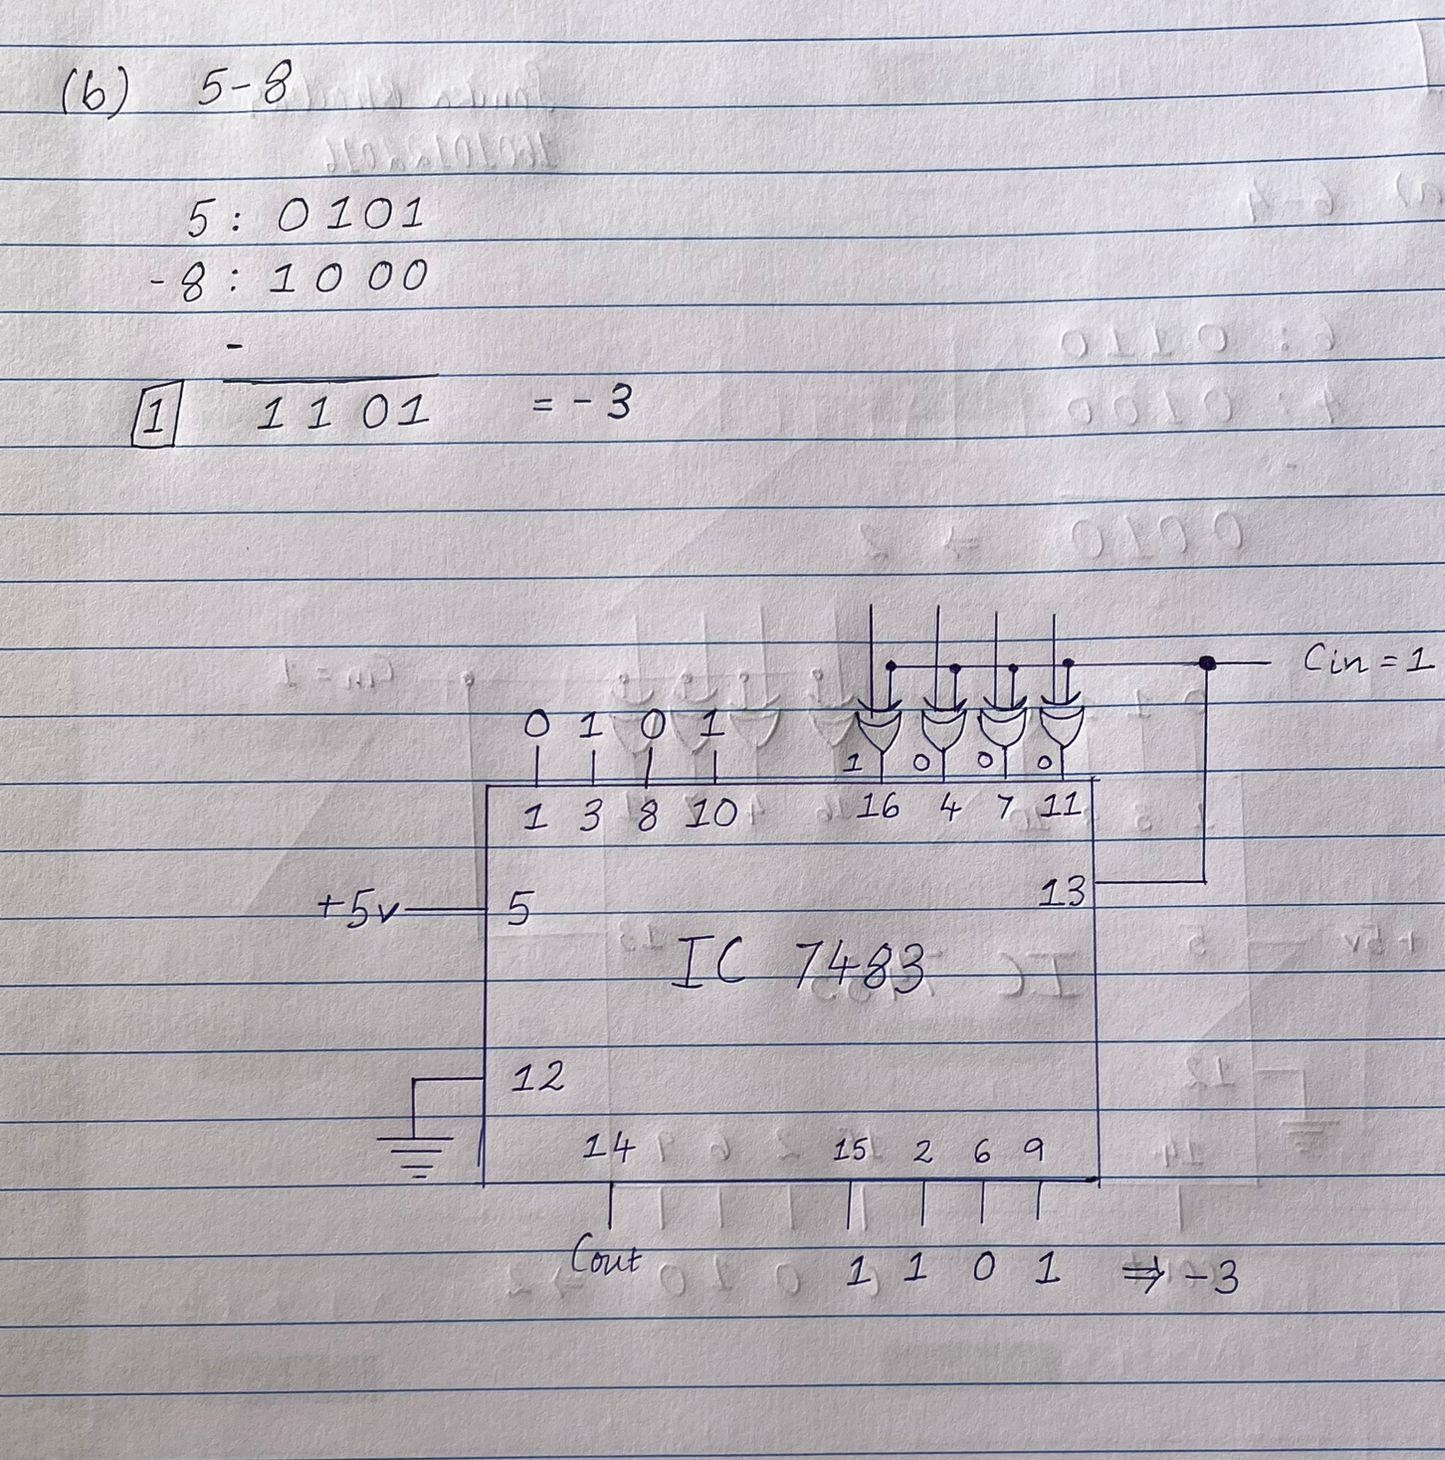 (b) 5-8
5 : 0101
-8 : 1000
-
1 1101 = -3
Cin = 1
0 1 0 1 1 0 0 0
1 3 8 10 16 4 7 11
13
+5v 5
IC 7483
12
14 15 2 6 9
Cout 1 1 0 1 ⇒ -3